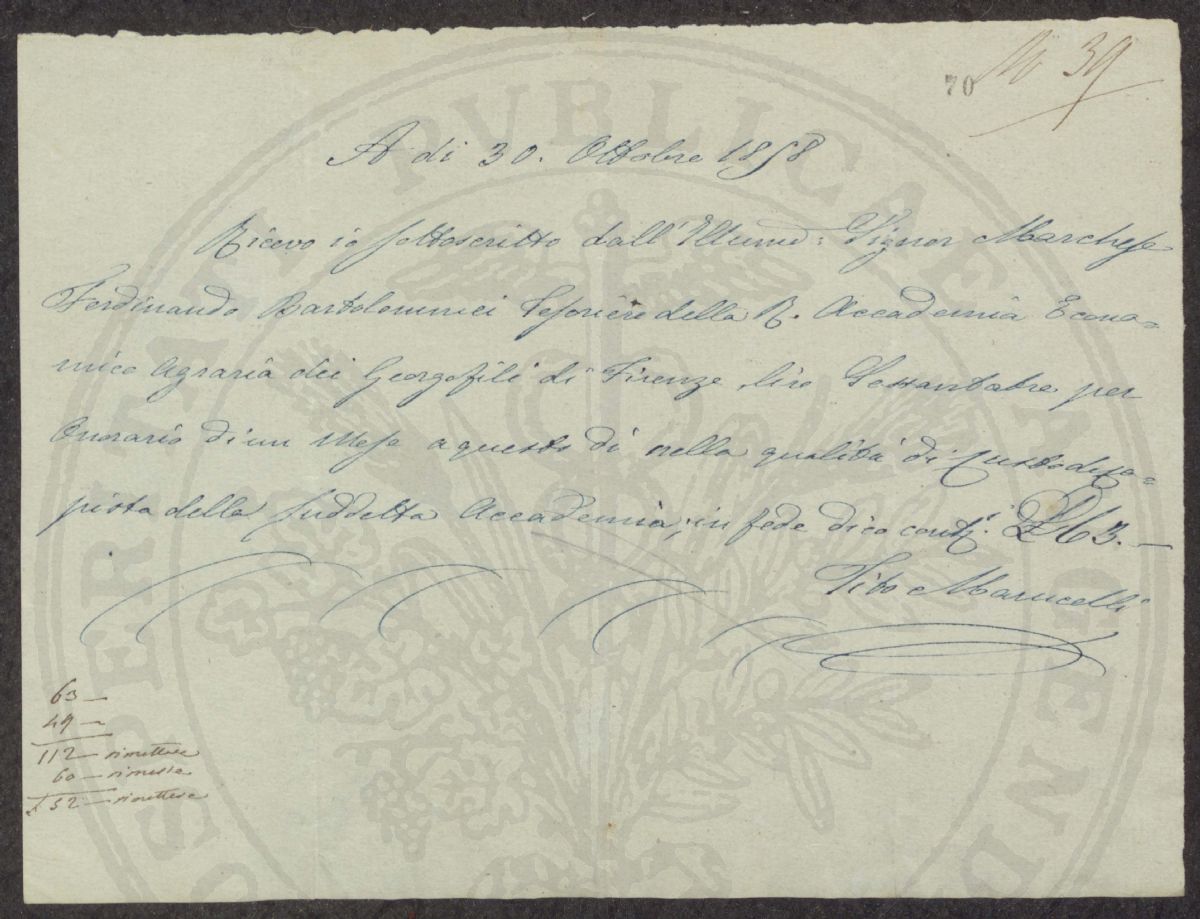 70 N° 39
A di 30. Ottobre 1858
Ricevo io sottoscritto dall' Illumo: Signor Marchese
Ferdinando Bartolommei Tesoriere della R. Accademia Econo=
mico Agraria dei Georgofili di Firenze lire Sessantatre per
Onorario di un Mese a questo dì nella qualità di Custode, co=
pista della suddetta Accademia; in fede dico cont: £ 63. —
Tito Marucelli
63 —
49 —
112 — rimettere
60 — rimessa
£ 52 — rimettere
PROSPERITATI PUBLICAE AUGENDAE